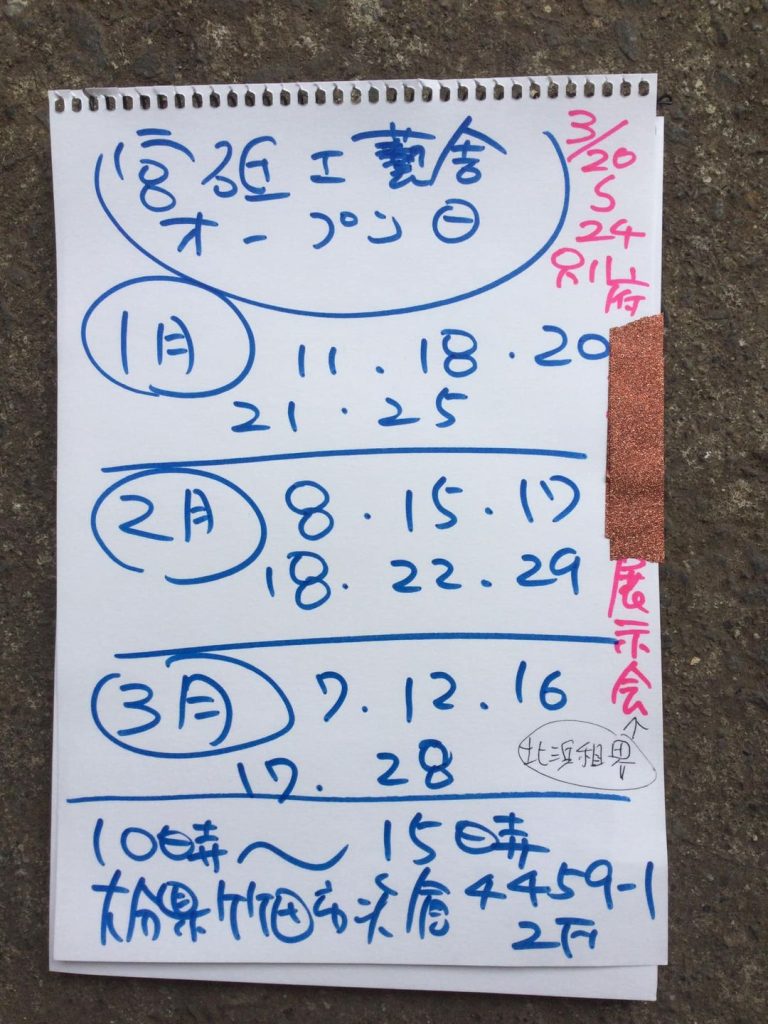 宮砥工藝舎
オープン日
1月 11.18.20
21.25
2月 8.15.17
18.22.29
3月 7.12.16
17.28
10時〜15時
大分県竹田市次倉4459-1
2F
3/20
24
別府
展示会
↑
北浜租界